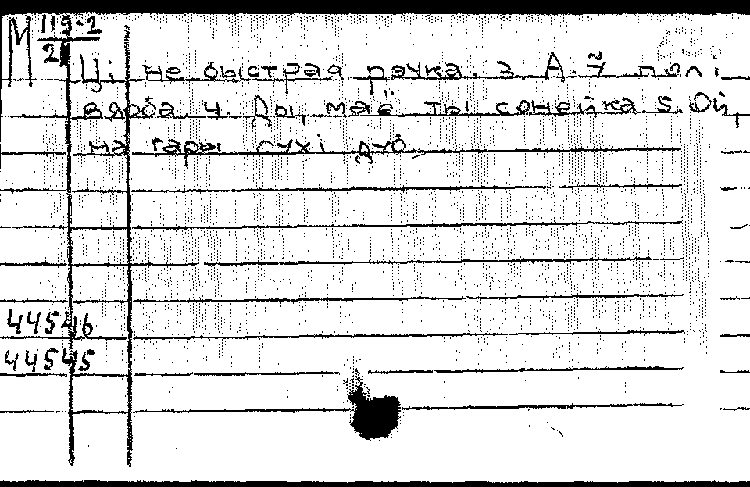 М 119-2
21
Ці не быстрая рэчка. 3. А ў полі
вярба 4. Ды, маё ты сонейка 5. Ой,
на гары сухі дуб
44546
44545